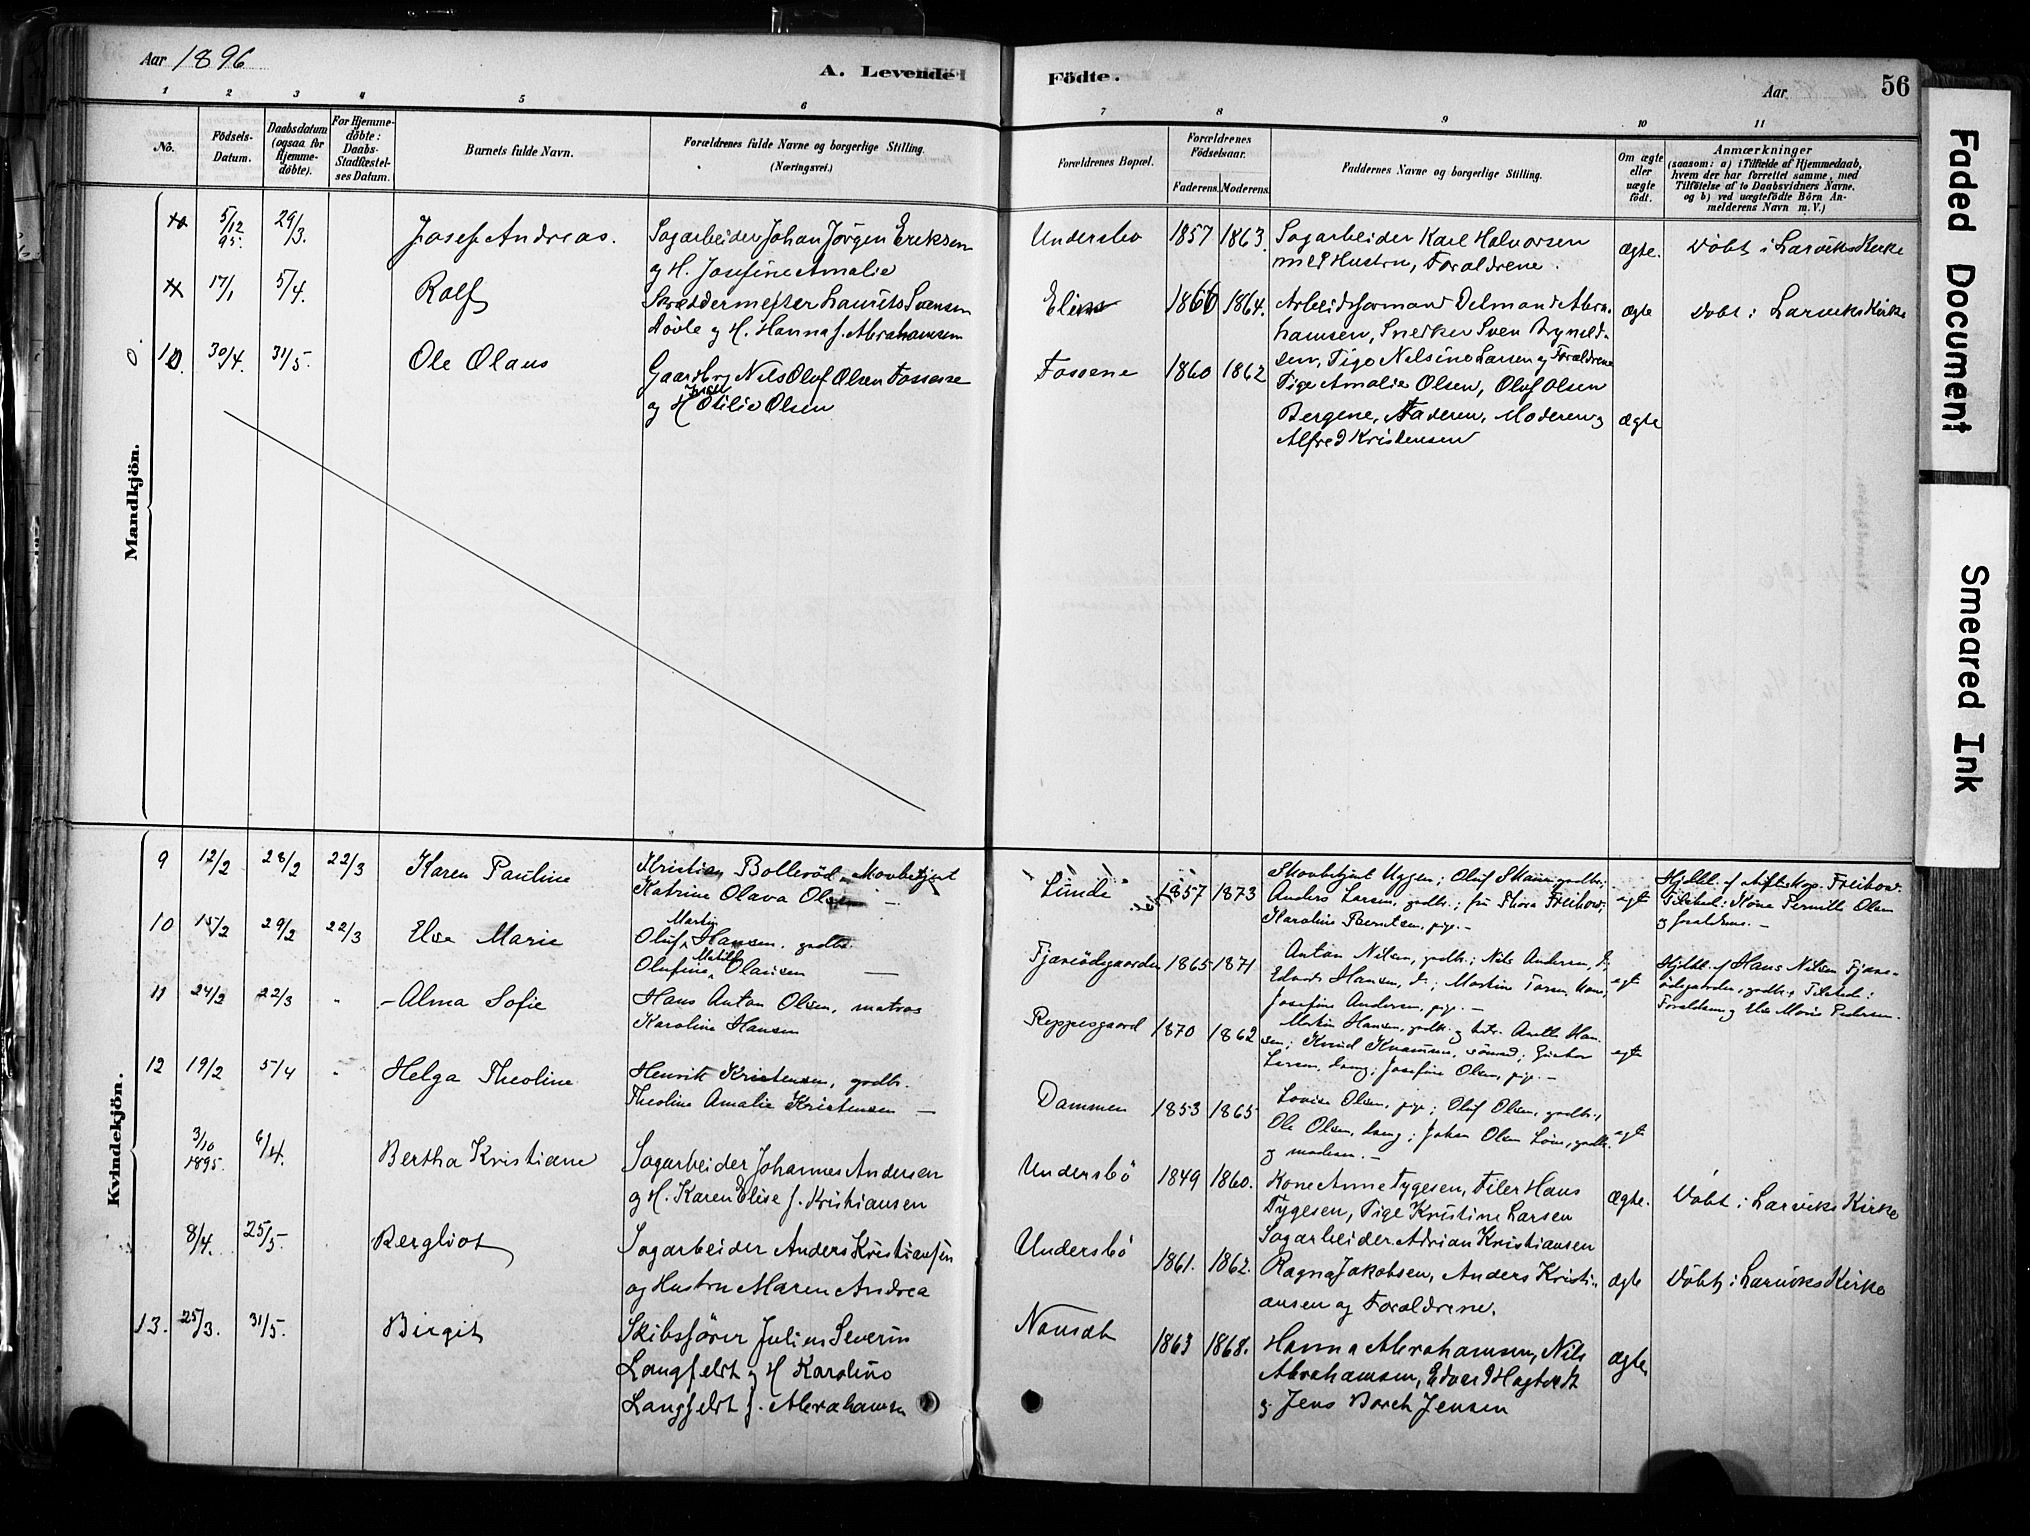 Aar 1896
A. Levende
Födte.
Aar
56
1 2 3 4 5 6 7 8 9 10 11
No.
Födsels-Datum.
Daabsdatum (ogsaa for Hjemme-döbte).
For Hjemme-döbte: Daabs-Stadfæstel-ses Datum.
Barnets fulde Navn.
Forældrenes fulde Navne og borgerlige Stilling.
(Næringsvei.)
Forældrenes Bopæl.
Forældrenes Födselsaar.
Faderens. Moderens.
Faddernes Navne og borgerlige Stilling.
Om ægte eller uægte födt.
Anmærkninger
(saasom: a) i Tilfælde af Hjemmedaab,
hvem der har forrettet samme, med
Tilföielse af to Daabsvidners Navne.
og b) ved uægtefödte Börn An-
melderens Navn m. V.)
Mandkjön.
5/12 95. 29/3. Josef Andreas. Sagarbeider Johan Jörgen Eriksen
og H. Josefine Amalie
Undersbo 1857 1863. Sagarbeider Karl Halvorsen
med Hustru, Forældrene.
ægte. Döbt i Larviks Kirke
17/1 5/4. Rolf Skræddermester Laurits Svensen
og H. Hanna f. Abrahamsen
1860 1864. Arbeidsformand Delmand Abra-
hamsen, Snekker Sven Brynild-
sen, Pige Nilsine Larsen og Forældrene
ægte Döbt i Larviks Kirke
10. 30/4. 31/5. Ole Olaus Gaardbrg Nils Oluf Olsen Fossene
og H Otilie Olsen
Fossene 1860 1862 Pige Amalie Olsen, Oluf Olsen
Bergene, Faderen, Moderen og
Alfred Kristensen
ægte
Kvindekjön.
9 12/2 28/2 22/3 Karen Pauline Kristian Bolleröd, Skovbetjent
Katrine Olava Olsen —
Lunde 1857 1873 Skovbetjent Uggen; Oluf Skaun gaardbr.;
Anders Larsen, gaardbr.; fru Thora Freihow;
Karoline Berntsen, pige. —
egte Hjdbt. af Freihow.
Kone Pernille Olsen
og forældrene. —
10 15/2 29/2 22/3 Else Marie Oluf Martin Hansen, gaardbr.
Olufine Mathilde Olausen —
Fjæreödegaarden 1865 1871 Anton Nilsen, gaardbr.; Nils Andersen, d.;
Edvard Hansen, d.; Martine Larsen, kone;
Josefine Andersen, pige. —
egte Hjdbt. af Hans Nilsen Fjære-
ödegaarden, gaardbr. Tilstede:
Forældrene og Else Marie Pedersen.
11 24/2 22/3 - Alma Sofie Hans Anton Olsen, matros
Karoline Hansen
Reppesgaard 1870 1862 Martin Hansen, gaardbr. og Anette Han-
sen; Knud Knudsen, sömand; Gustav
Larsen, ung; Josefine Olsen, pige. —
egte
12 19/2 5/4 - Helga Theoline Henrik Kristensen, gaardbr.
Theoline Amalie Kristensen —
Dammen 1853 1865 Lovise Olsen, pige; Oluf Olsen, gaardbr.,
Ole Olsen, ung; Johan Olsen, gaardbr.
og moderen. —
egte
3/10 1895. 6/4. Bertha Kristiane Sagarbeider Johannes Andersen
og H. Karen Elise f. Kristiansen
Undersbö 1849 1860. Kone Anne Tygesen, Filer Hans
Tygesen, Pige Kristine Larsen
Sagarbeider Adrian Kristiansen
ægte. Döbt i Larviks Kirke
8/4. 25/5. Bergliot Sagarbeider Anders Kristiansen
og Hustru Maren Andrea
Undersbö 1861. 1862. Ragna Jakobsen, Anders Kristi-
ansen og Forældrene.
ægte Döbt i Larviks Kirke
13. 25/3. 31/5. Birgit Skibsförer Julius Severin
Langfeldt og H Karoline
Langfeldt f. Abrahamsen
Nansæt 1863 1868. Hanna Abrahamsen, Nils
Abrahamsen, Edvard Hagtvedt
og Jens Borch Jensen
ægte
Faded Document
Smeared Ink